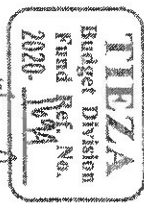 TIEZA
Budget Division
Fund Ref. No.
2020